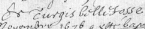 de Turgis bellefasse
Novembre 1676 a esté bap